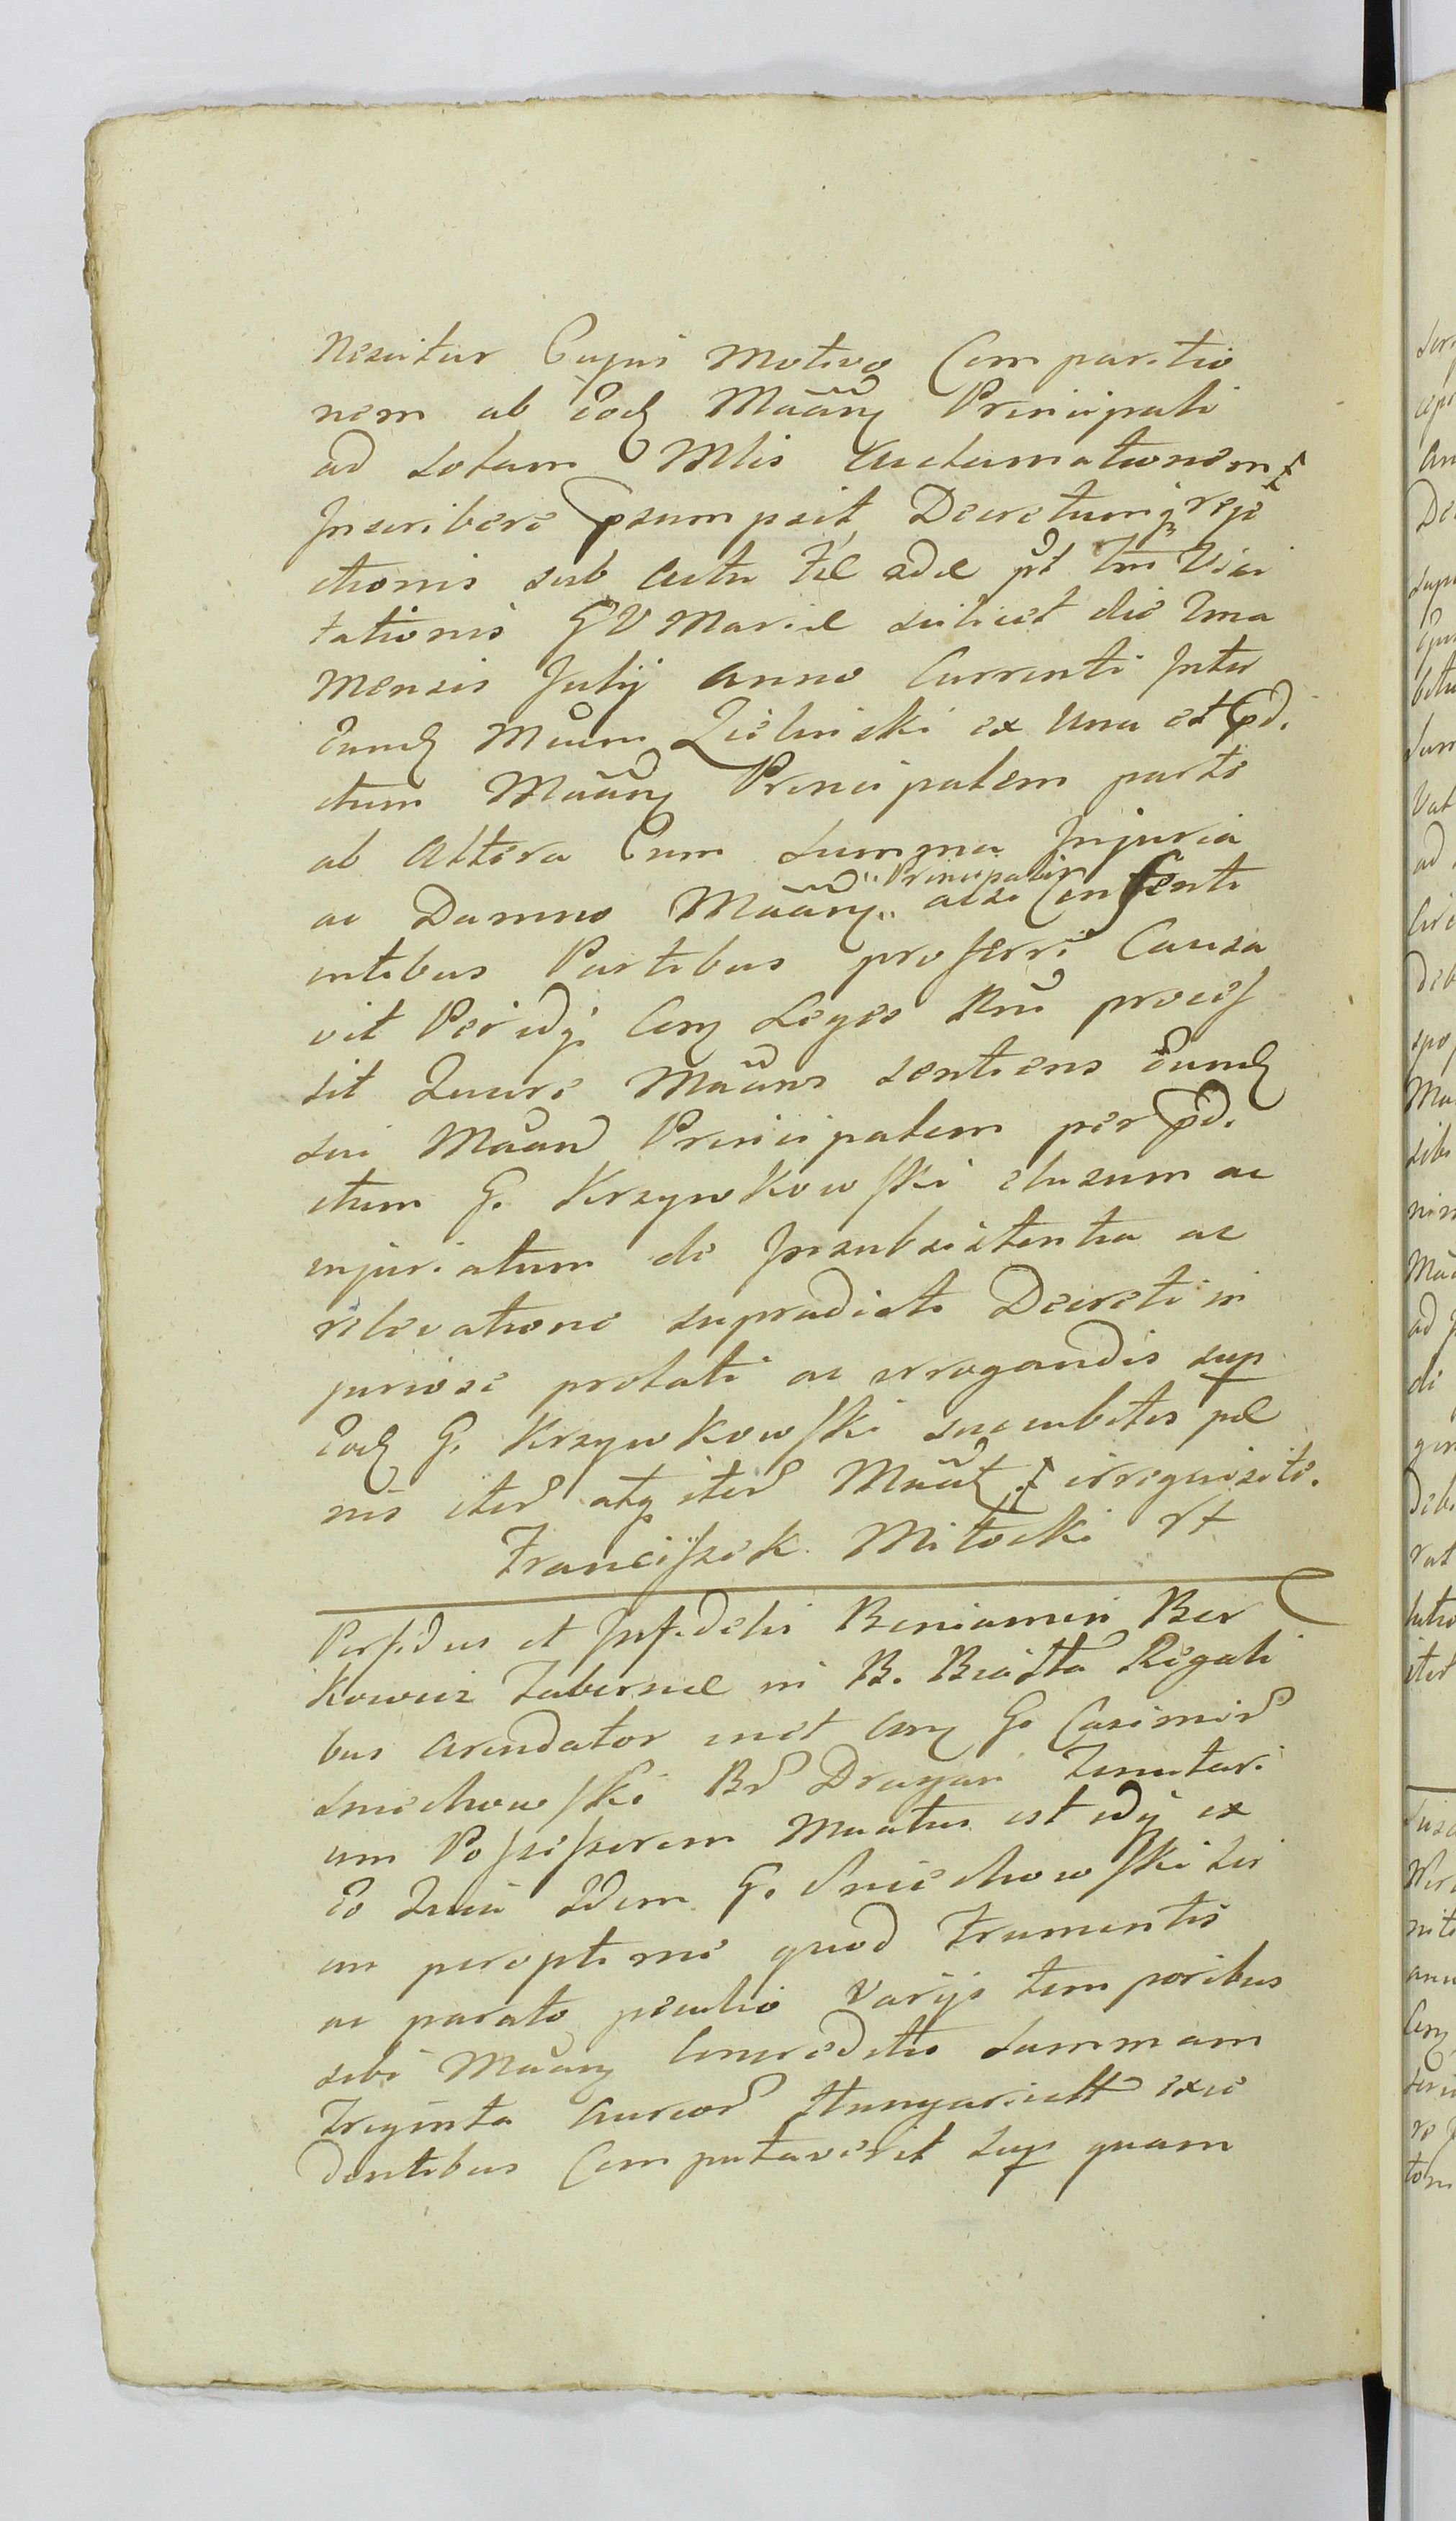 nescitur Cujus Motivo Comparitio
nem ab Eod Mããny Principali
ad solam Mlis Acclamationem
Inscribere Psumpsit, Decretumq reje
ctionis sub Actu Fél adæ pt Tm Visi
tationis GV Mariæ scilicet die 2ma
Mensis Julij Anno Currenti Inter
Eund Mucm Zielinski ex Una et Pd.
ctum Mããny Principalem parte
ab Altera Cum Summa Injuria
ac Damno Mããny " Principalis acsi Consenti
entibus Partibus proferri Causa
vit Per idq Cuný Leges Rni proces
sit Quare Mããns sentiens Eund
sui Mããnd Principalem per Pd.
ctum G. Krzywkowski elusum ac
injuriatum de Insubsistentia ac
relevatione supradicti Decreti in
juriose prolati ac irrogandis sup
Eod G. Krzywkowski succubitis pæ
nis iter atq iter Mããt irrequisite.
Franciszek Miłocki rt
Perfidus et Infidelis Beniamin Ber
kowicz Tabernæ in B. Biała Regali
bus Arendator inct Cuný G. Casimir
Sniechowski Br Dragan Tenutari
um Possessorem Muatus est idq ex
Eo Quia Idem G. Sniechowski sci
an peroptime quod Frumentis
ac parato peculio Varijs temporibus
sibi Mããny Concreditis Summam
Triginta Aureor Hungaricall exce
dentibus Computaverit sup quam